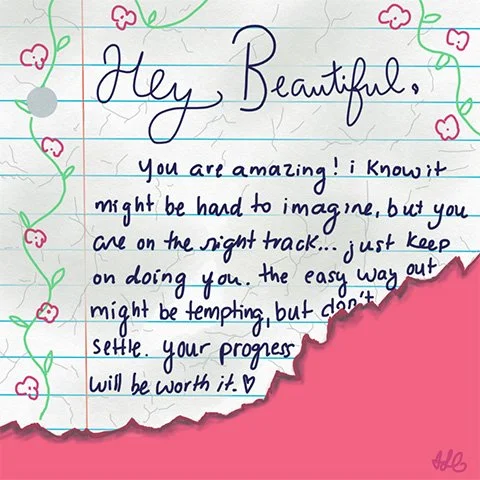 Hey Beautiful.
You are amazing! i know it
might be hard to imagine, but you
are on the right track... just keep
on doing you. the easy way out
might be tempting, but don't
settle. your progress
will be worth it.♡